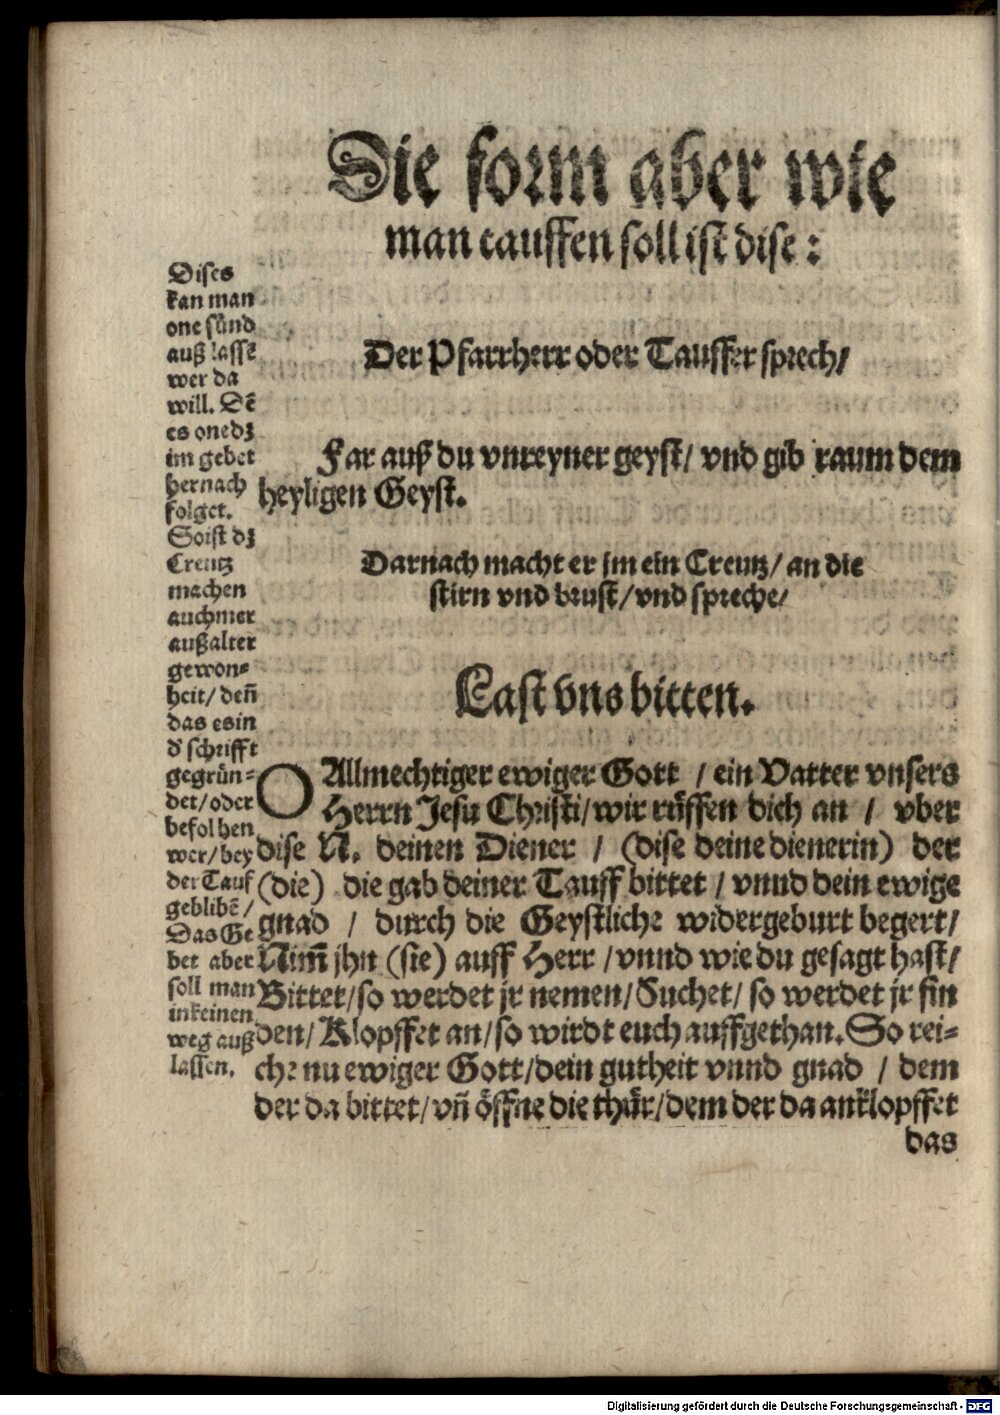 Die form aber wie
man tauffen soll ist dise:
Dises
kan man
one sünd
auß lassē
wer da
will. Dē
es one dz
im gebet
hernach
folget.
So ist dz
Creutz
machen
auch mer
auß alter
gewon-
heit/ deñ
das es in
d' schrifft
gegrün-
det/ oder
befolhen
wer/ bey
der Tauf
geblibē/
Das Ge
bet aber
soll man
in keinen
weg auß
lassen.
Der Pfarrherr oder Tauffer sprech/
Far auß du vnreyner geyst/ vnd gib raum dem
heyligen Geyst.
Darnach macht er jm ein Creutz/ an die
stirn vnd brust/ vnd spreche/
Last vns bitten.
O Allmechtiger ewiger Gott / ein Vatter vnsers
Herrn Jesu Christi/ wir rüffen dich an / vber
dise N. deinen Diener / (dise deine dienerin) der
(die) die gab deiner Tauff bittet / vnnd dein ewige
gnad / durch die Geystliche widergeburt begert/
Nim̄ jhn (sie) auff Herr / vnnd wie du gesagt hast/
Bittet/ so werdet jr nemen/ Suchet/ so werdet jr fin
den/ Klopffet an/ so wirdt euch auffgethan. So rei-
che nu ewiger Gott/ dein gutheit vnnd gnad / dem
der da bittet/ vñ öffne die thür/ dem der da anklopffet
das
Digitalisierung gefördert durch die Deutsche Forschungsgemeinschaft - DFG